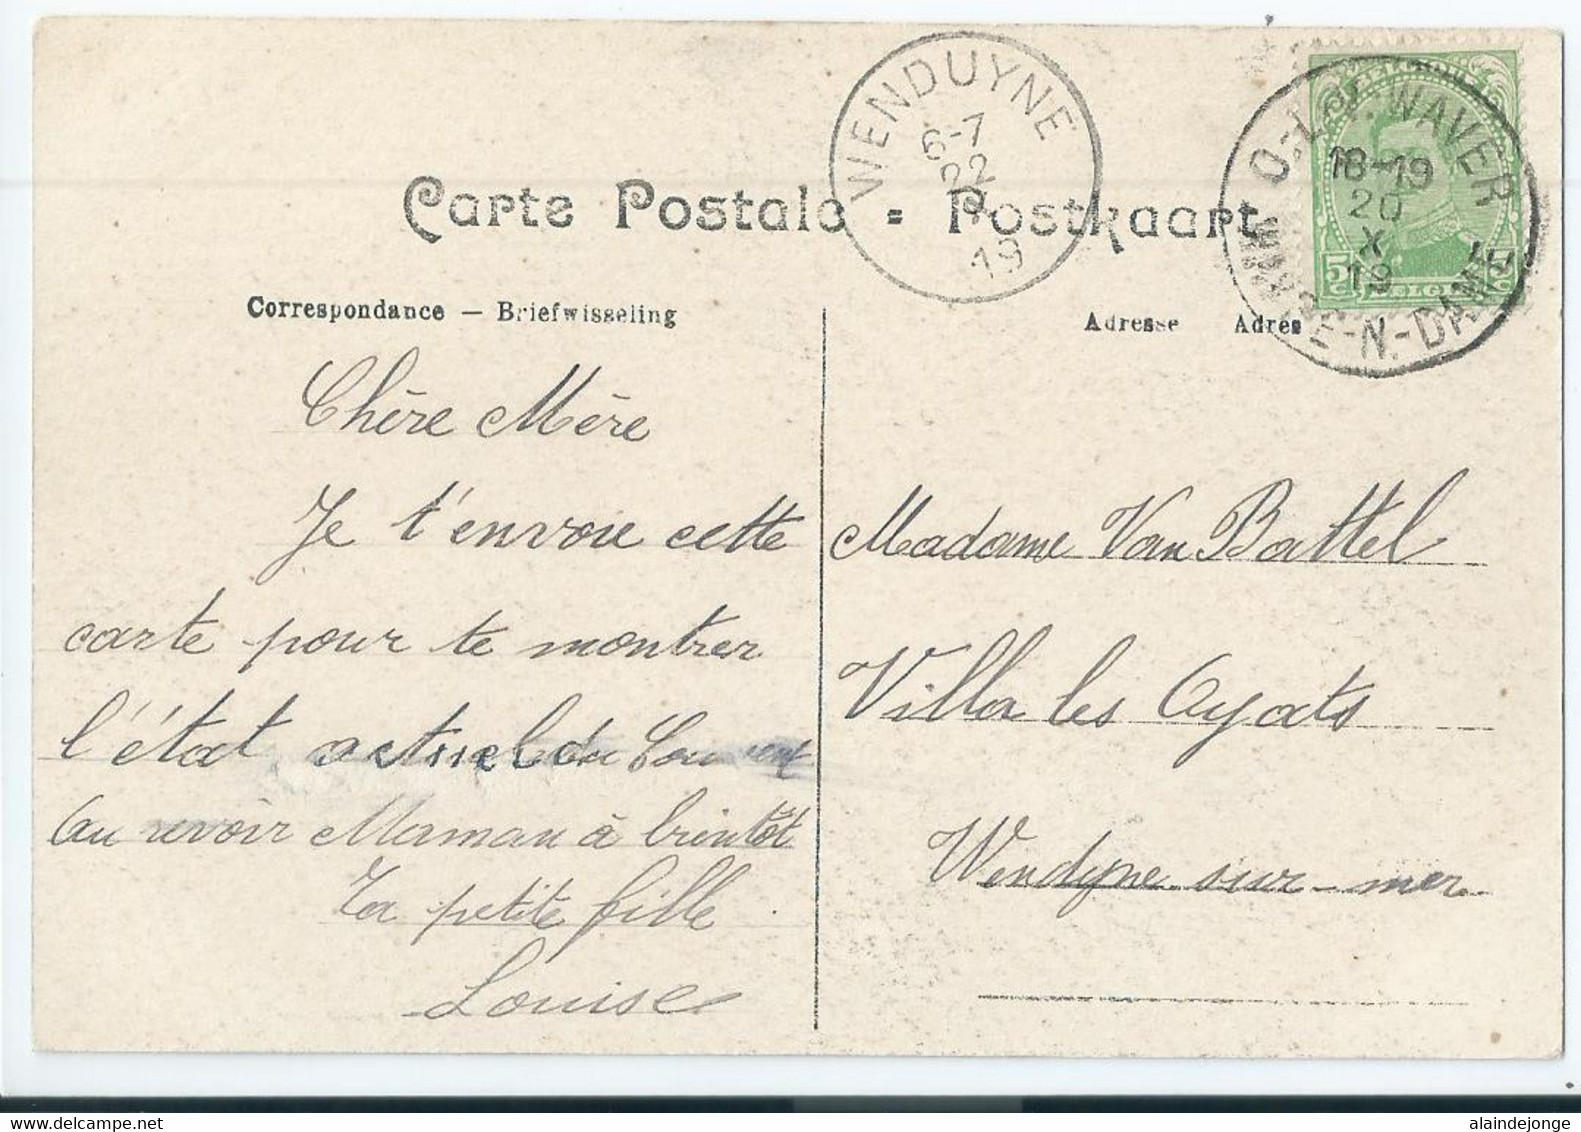 WENDUYNE
6-7
22
19
O.-L.-V. WAVER
18-19
20
X
19
WAVRE-N.-DAME
5c BELGIE 5c
Carte Postale = Postkaart
Correspondance — Briefwisseling
Adresse Adres
Chère Mère
Je t'envoie cette
carte pour te montrer
l'état actuel du Couvent
Au revoir Maman à bientôt
Ta petite fille
Louise
Madame Van Battel
Villa les Oyats
Wendyne-sur-mer
alaindejonge